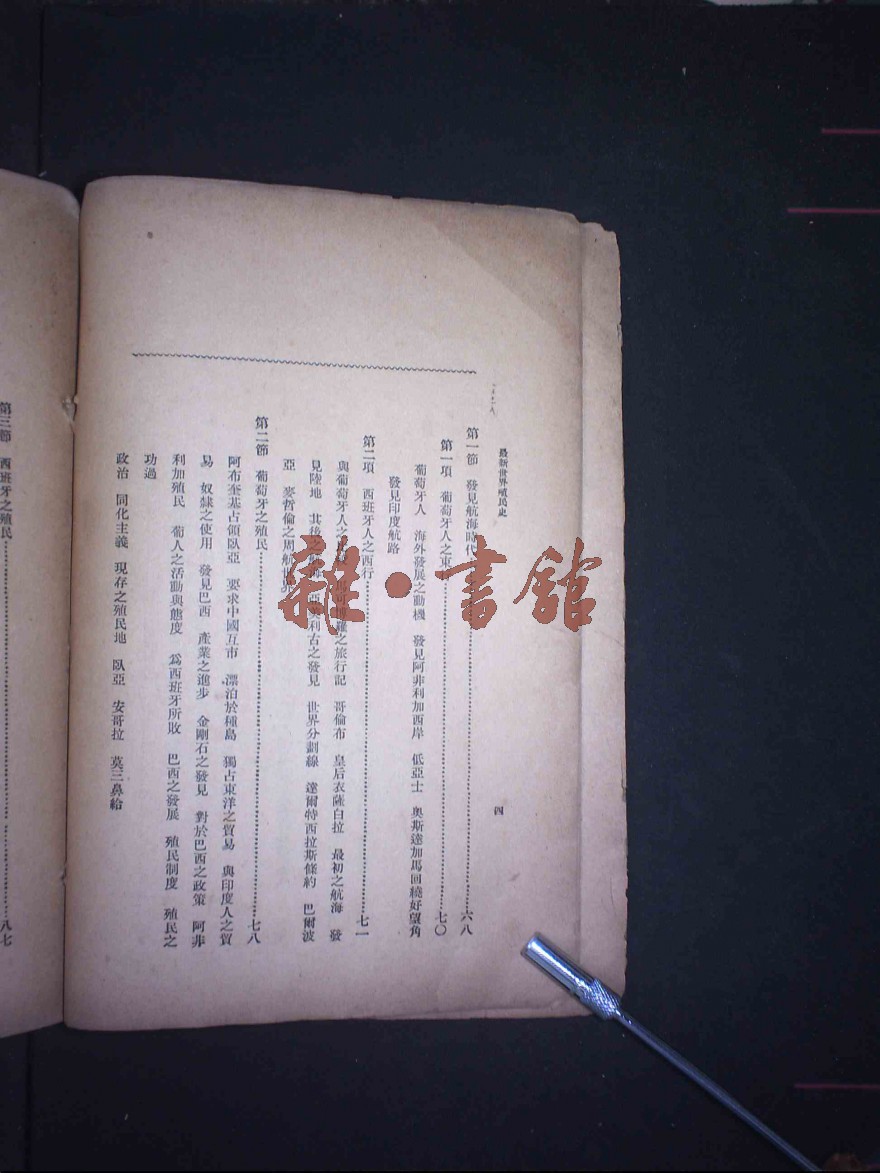 最新世界殖民史
四
第一節 發見航海時代……六八
第一項 葡萄牙人之東……七〇
葡萄牙人 海外發展之動機 發見阿非利加西岸 低亞士 奧斯達加馬回繞好望角
發見印度航路
第二項 西班牙人之西行……七一
與葡萄牙人之 之旅行記 哥倫布 皇后衣薩白拉 最初之航海 發
見陸地 其後之航海 亞美利古之發見 世界分劃線 達爾特西拉斯條約 巴爾波
亞 麥哲倫之周航世界
第二節 葡萄牙之殖民……七八
阿布奎基占領臥亞 要求中國互市 漂泊於種島 獨占東洋之貿易 與印度人之貿
易 奴隸之使用 發見巴西 產業之進步 金剛石之發見 對於巴西之政策 阿非
利加殖民 葡人之活動與態度 為西班牙所敗 巴西之發展 殖民制度 殖民之
功過
政治 同化主義 現存之殖民地 臥亞 安哥拉 莫三鼻給
第三節 西班牙之殖民……八七
雜·書館